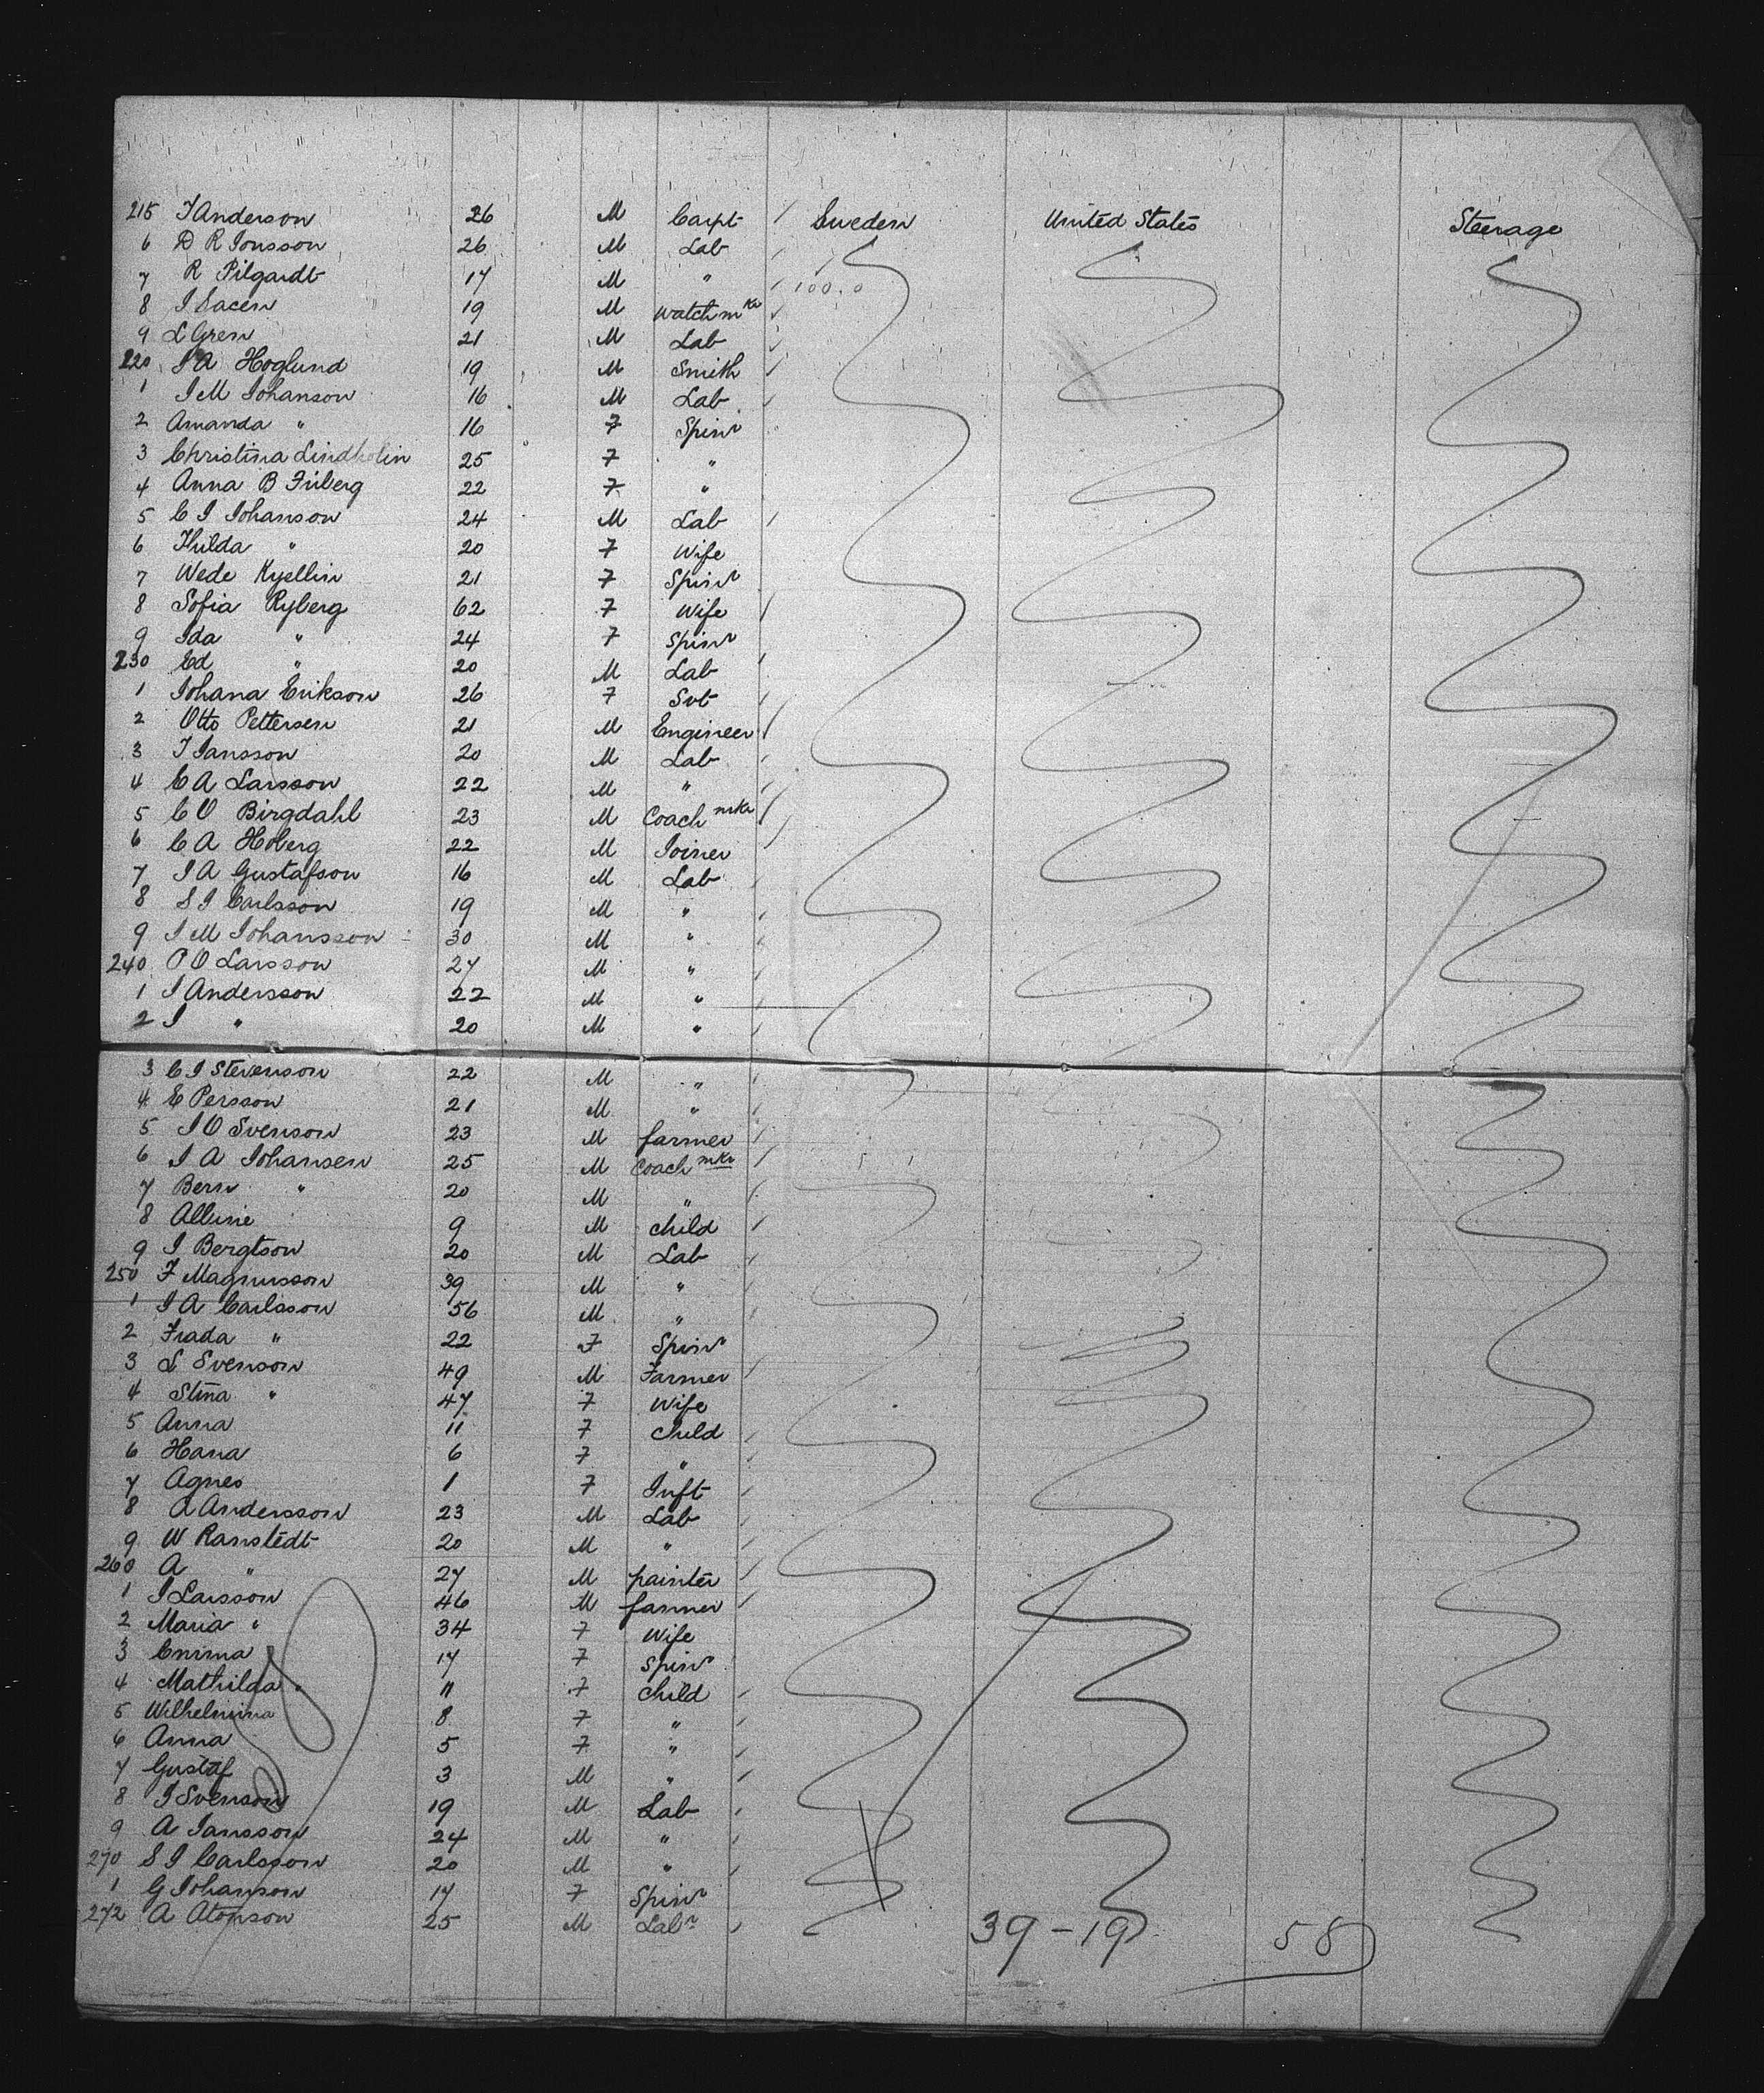 215 J Anderson 26 M Carpt / Sweden United States Steerage
6 D R Jonsson 26 M Lab
7 R Pilgardt 17 M "
8 I Sacen 19 M Watch mkr
9 L Gren 21 M Lab
220 I A Hoglund 19 M Smith
1 I M Johanson 16 M Lab
2 Amanda " 16 F Spinr
3 Christina Lindholin 25 F "
4 Anna B Friberg 22 F "
5 C I Johanson 24 M Lab
6 Hulda " 20 F Wife
7 Wede Kyellin 21 F Spinr
8 Sofia Ryberg 62 F Wife
9 Ida " 24 F Spinr
230 Ed " 20 M Lab
1 Johana Erikson 26 F Svt
2 Otto Pettersen 21 M Engineer
3 J Jansson 20 M Lab
4 C A Larsson 22 M "
5 C O Birgdahl 23 M Coach mkr
6 C A Hoberg 22 M Joiner
7 I A Gustafson 16 M Lab
8 S I Carlsson 19 M "
9 I M Johansson 30 M "
240 P O Larsson 27 M "
1 I Andersson 22 M "
2 I " 20 M "
3 C I Stevenson 22 M "
4 E Persson 21 M "
5 I O Svenson 23 M farmer
6 I A Johansen 25 M Coach mkr
7 Bern " 20 M "
8 Allune 9 M child
9 I Bergtson 20 M Lab
250 F Magnusson 39 M "
1 I A Carlsson 56 M "
2 Frada " 22 F Spinr
3 L Svenson 49 M Farmer
4 Stina " 47 F Wife
5 Anna 11 F Child
6 Hana 6 F "
7 Agnes 1 F Inft
8 A Andersson 23 M Lab
9 W Ranstedt 20 M "
260 A " 27 M painter
1 I Larsson 46 M farmer
2 Maria " 34 F Wife
3 Emma 17 F Spinr
4 Mathilda 11 F child
5 Wilhelmina 8 F "
6 Anna 5 F "
7 Gustaf 3 M "
8 I Svenson 19 M Lab
9 A Jansson 24 M "
270 S I Carlsson 20 M "
1 G Johanson 17 F Spinr
272 A Atonson 25 M Labr
39 - 19 58